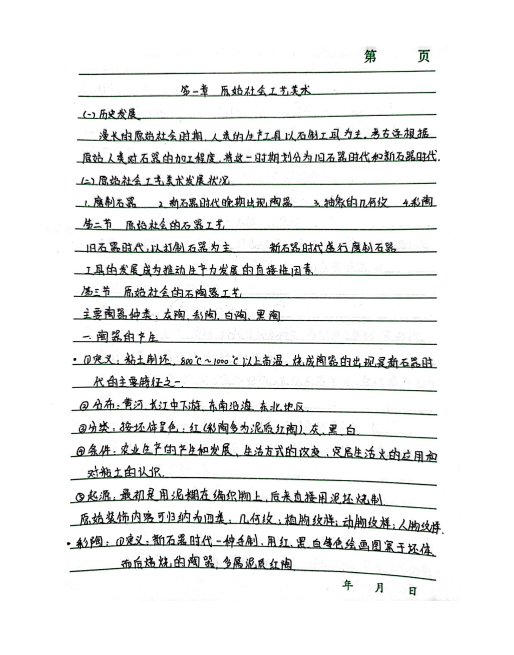 第 页
第一章 原始社会工艺美术
(一)历史发展
漫长的原始社会时期,人类的生产工具以石制工具为主,考古学根据
原始人类对石器的加工程度,将这一时期划分为旧石器时代和新石器时代.
(二)原始社会工艺美术发展状况
1.磨制石器 2.新石器时代晚期出现陶器 3.抽象的几何纹 4.彩陶
第二节 原始社会的石器工艺
旧石器时代:以打制石器为主 新石器时代盛行磨制石器
工具的发展成为推动生产力发展的直接性因素
第三节 原始社会的石陶器工艺
主要陶器种类:灰陶、彩陶、白陶、黑陶
一.陶器的产生
·①定义:粘土制坯,800℃~1000℃以上高温,烧成陶器的出现是新石器时
代的主要特征之一
②分布:黄河、长江中下游、东南沿海、东北地区
③分类:按坯体呈色:红(彩陶多为泥质红陶)、灰、黑、白
④条件:农业生产的产生和发展、生活方式的改变,定居生活火的应用和
对粘土的认识.
⑤起源:最初是用泥糊在编织物上,后来直接用泥坯烧制
原始装饰内容可归纳为四类:几何纹;植物纹样;动物纹样;人物纹样.
·彩陶:①定义:新石器时代一种手制,用红、黑、白等色绘画图案于坯体
而后烧烧的陶器,多属泥质红陶
年 月 日